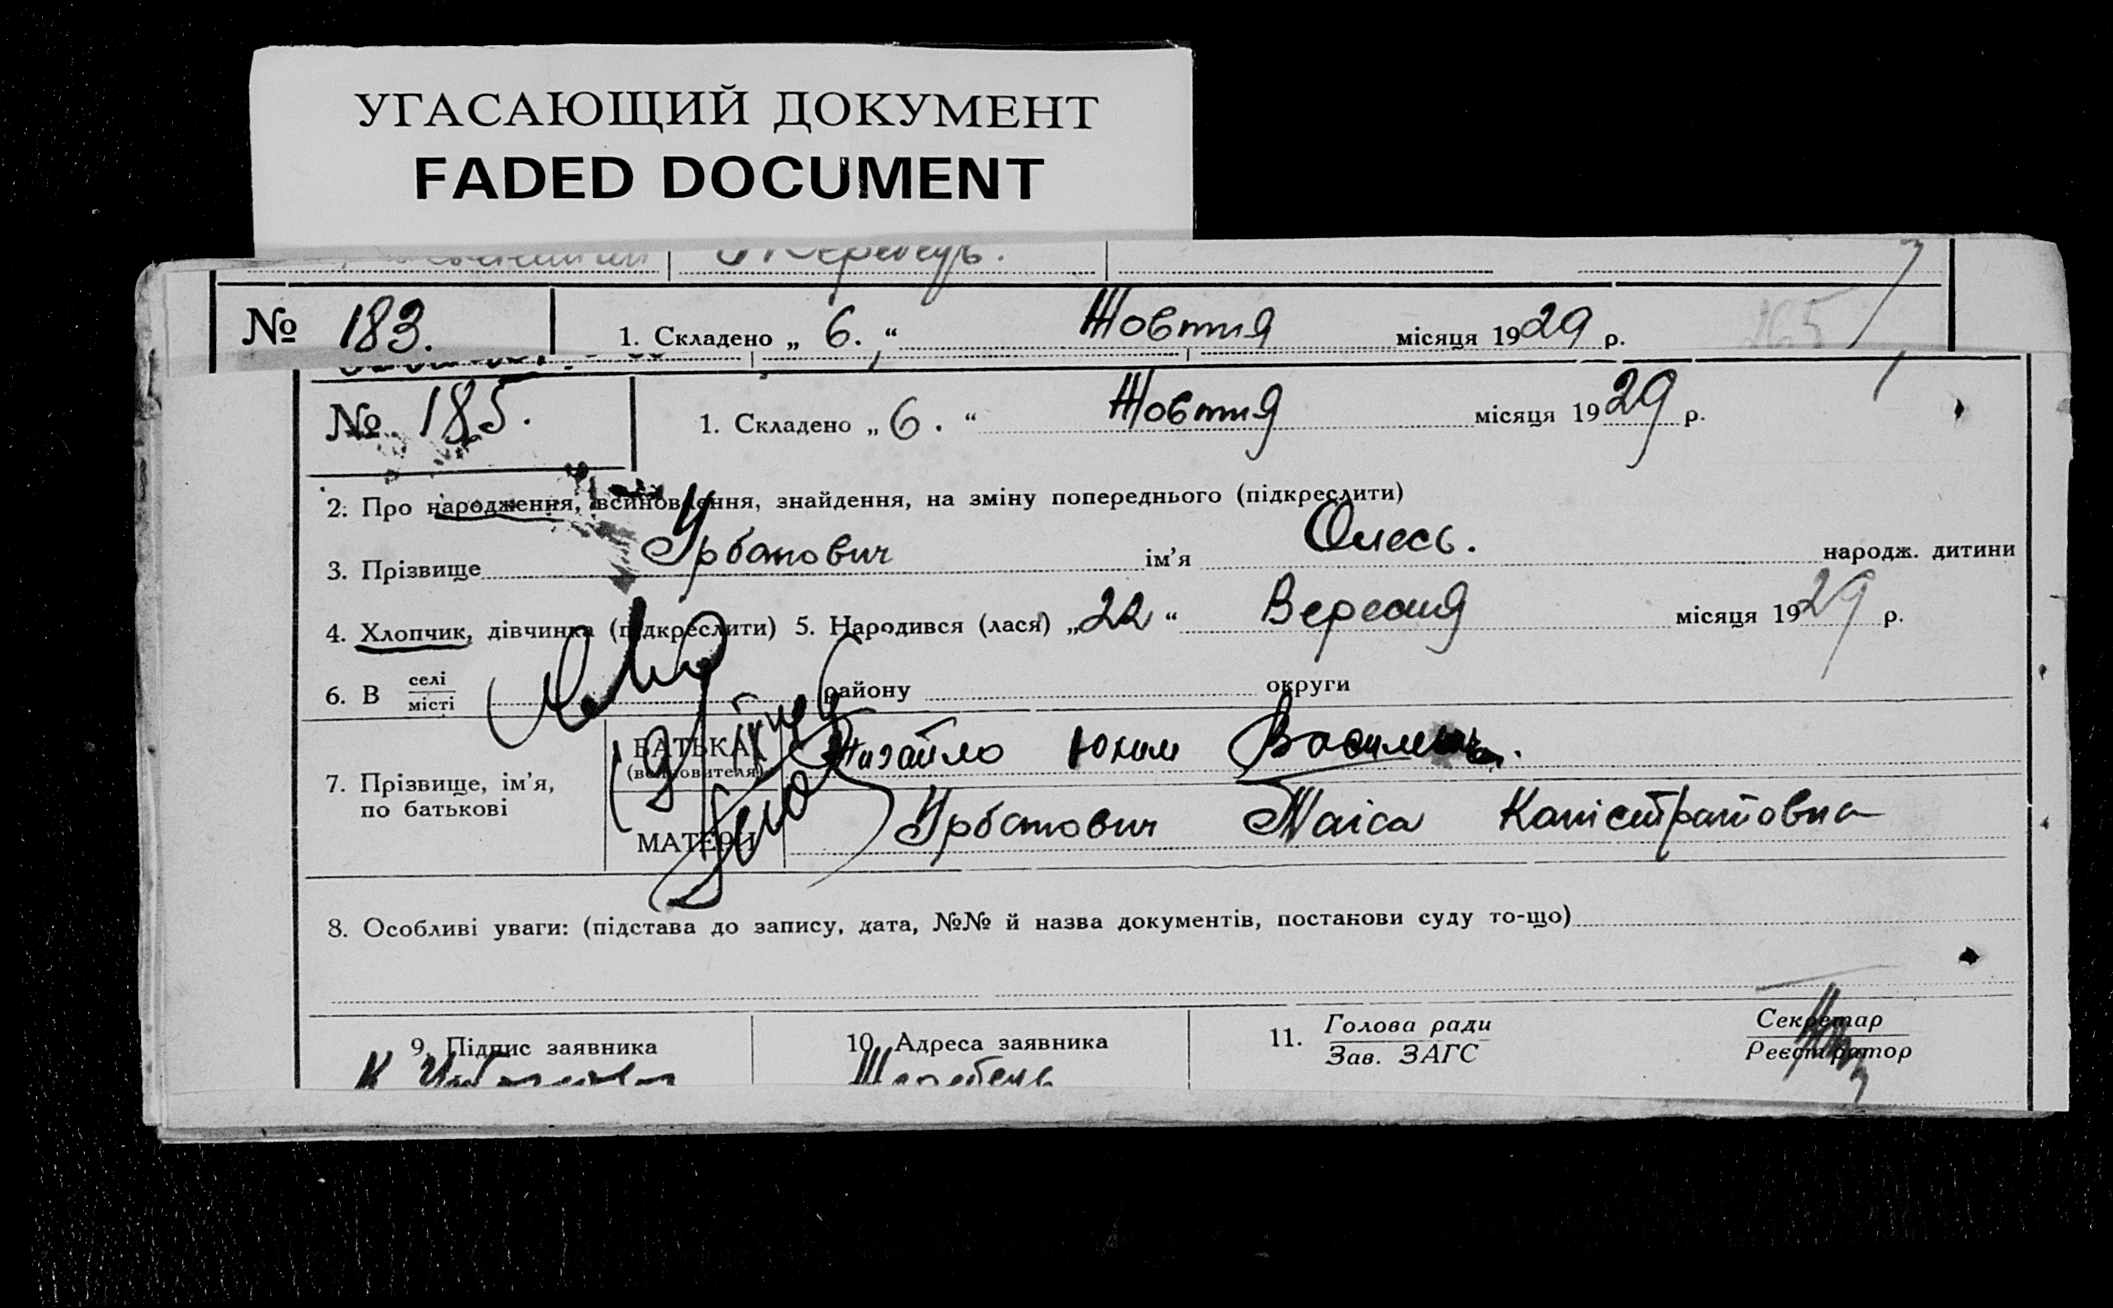 УГАСАЮЩИЙ ДОКУМЕНТ
FADED DOCUMENT
№ 183. 1. Складено „ 6. “ Жовтня місяця 1929 р. 265
№ 185. 1. Складено „ 6. “ Жовтня місяця 1929 р.
2. Про народження, всиновлення, знайдення, на зміну попереднього (підкреслити)
3. Прізвище Урбанович ім’я Олесь. народж. дитини
4. Хлопчик, дівчинка (підкреслити) 5. Народився (лася) „ 22 “ Вересня місяця 1929 р.
6. В селі місті району округи
7. Прізвище, ім’я, по батькові
БАТЬКА (всиновителя) Юхим
МАТЕРИ Урбанович Таіса Каністратовна
8. Особливі уваги: (підстава до запису, дата, №№ й назва документів, постанови суду то-що)
9. Підпис заявника 10. Адреса заявника 11. Голова ради Секретар
Зав. ЗАГС Реєстратор